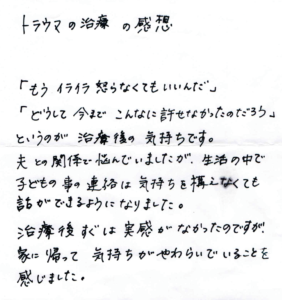 トラウマの治療 の感想
「もう イライラ 怒らなくてもいいんだ」
「どうして 今まで こんなに 許せなかったのだろう」
というのが 治療後の 気持ちです。
夫との関係で悩んでいましたが、生活の中で
子どもの事の連絡は気持ちを構えなくても
話ができるようになりました。
治療後すぐは実感がなかったのですが
家に帰って 気持ちがやわらいでいることを
感じました。